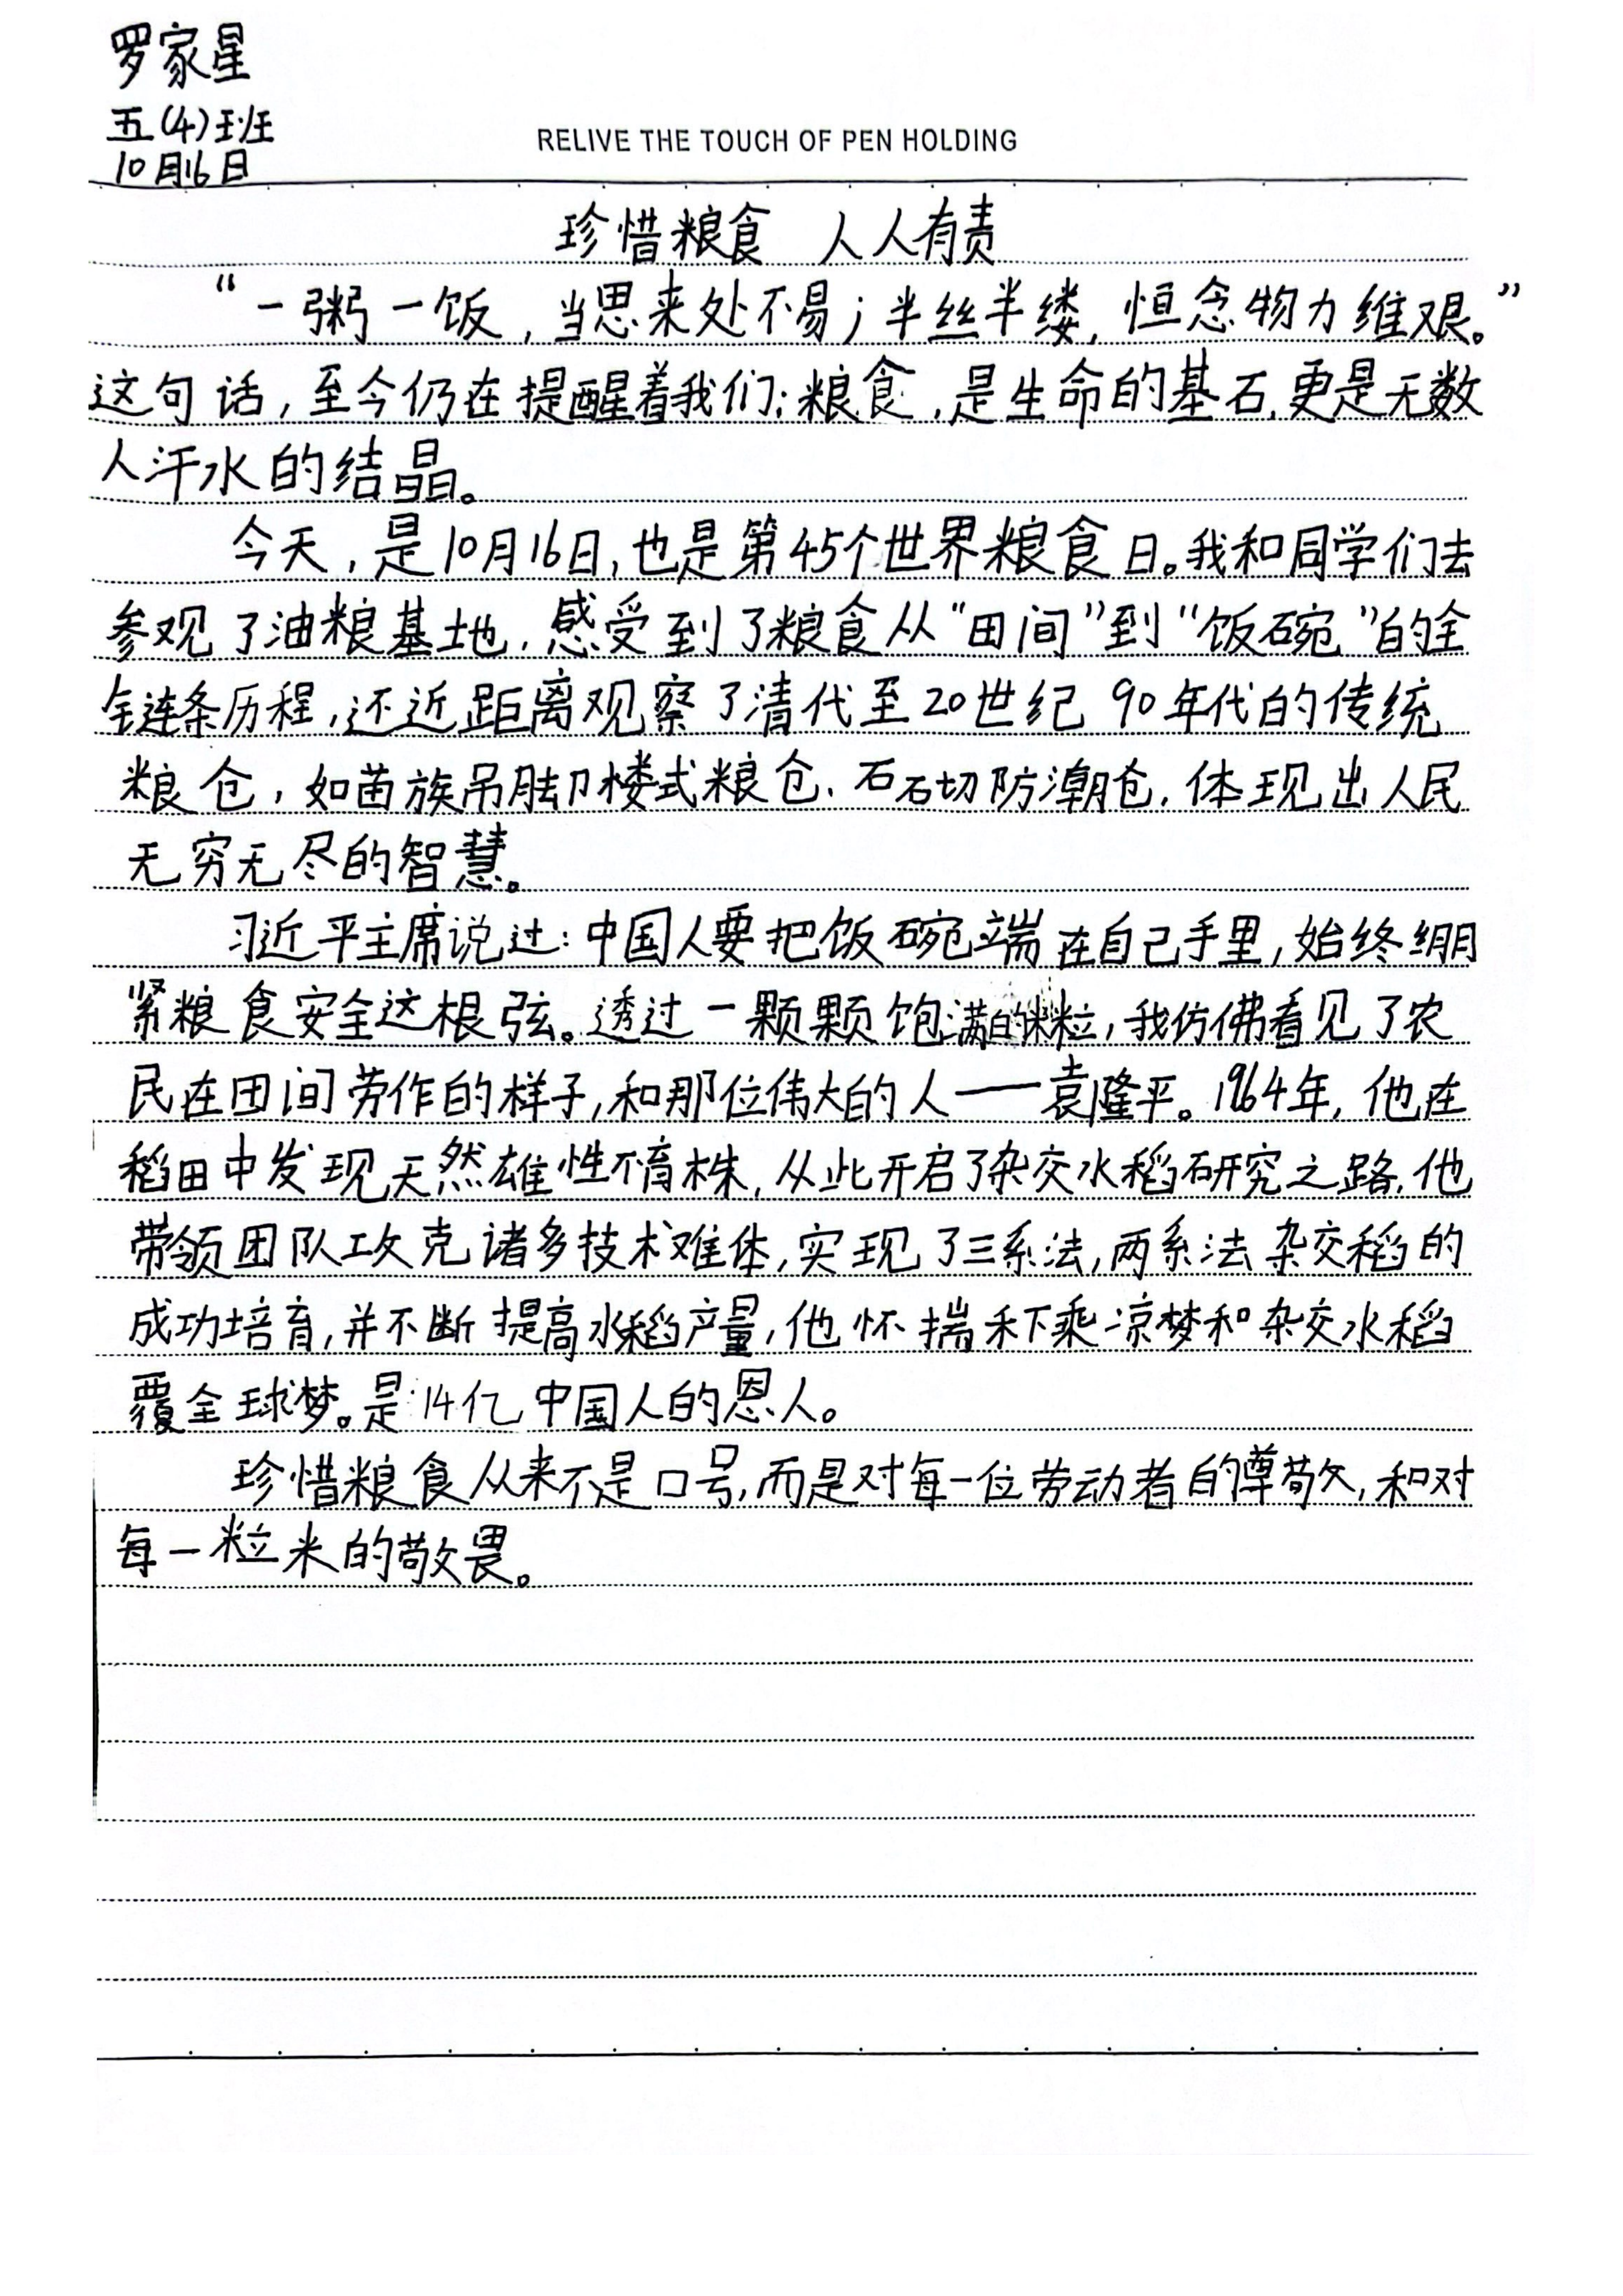 罗家星
五(4)班
10月16日
RELIVE THE TOUCH OF PEN HOLDING
珍惜粮食 人人有责
“一粥一饭,当思来处不易;半丝半缕,恒念物力维艰。”
这句话,至今仍在提醒着我们:粮食,是生命的基石,更是无数
人汗水的结晶。
今天,是10月16日,也是第45个世界粮食日。我和同学们去
参观了油粮基地,感受到了粮食从“田间”到“饭碗”的全
全连条历程,还近距离观察了清代至20世纪90年代的传统
粮仓,如苗族吊脚楼式粮仓、石砌防潮仓,体现出人民
无穷无尽的智慧。
习近平主席说过:中国人要把饭碗端在自己手里,始终绷
紧粮食安全这根弦。透过一颗颗饱满的米粒,我仿佛看见了农
民在田间劳作的样子,和那位伟大的人——袁隆平。1964年,他在
稻田中发现天然雄性不育株,从此开启了杂交水稻研究之路,他
带领团队攻克诸多技术难体,实现了三系法,两系法杂交稻的
成功培育,并不断提高水稻产量,他怀揣禾下乘凉梦和杂交水稻
覆全球梦。是14亿中国人的恩人。
珍惜粮食从来不是口号,而是对每一位劳动者的尊敬,和对
每一粒米的敬畏。